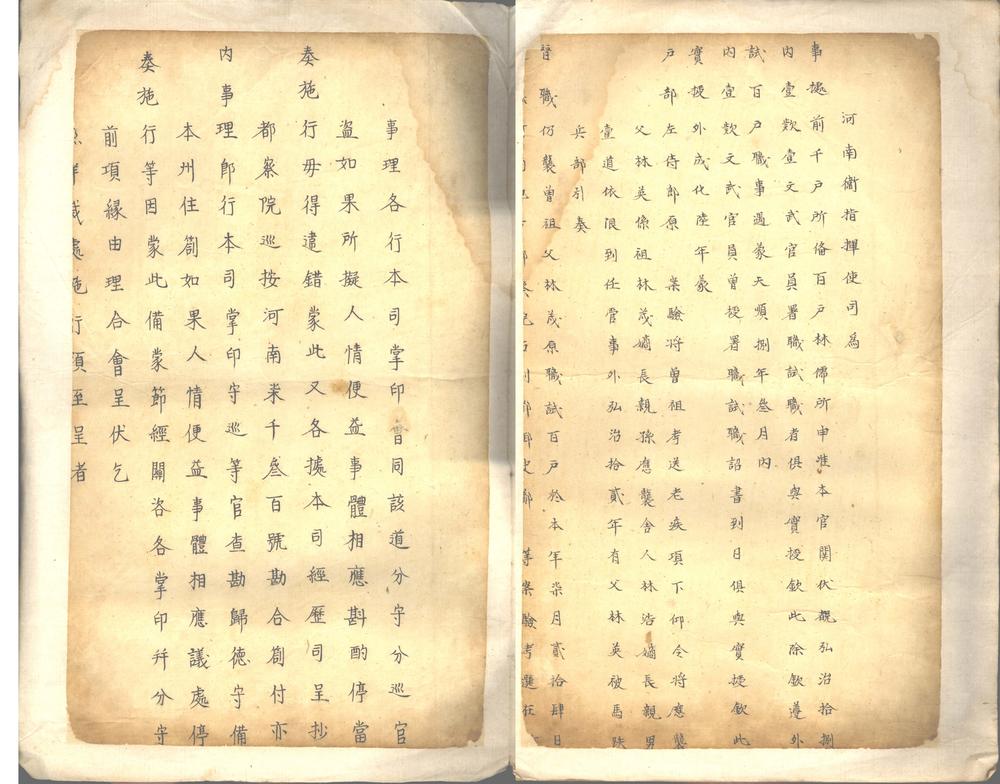 河南衛指揮使司為
事據前千戶所俻百戶林儒所申准本官関伏覩弘治拾捌
內壹欵壹文武官員署職試職者俱與實授欽此除欽遵外
試百戶職事遇蒙天順捌年叁月內
內壹欵文武官員曾授署職試職詔書到日俱與實授欽此
實授外成化陸年蒙
戶部左侍郎原案驗將曾祖考送老疾項下仰令將應襲
父林英係祖林茂嫡長親孫應襲舍人林浩嫡長親男
壹道依限到任管事外弘治拾貳年有父林英被馬跌
兵部引奏
替職仍襲曾祖父林茂原職試百戶於本年柒月貳拾肆日
等案驗考選在
事理各行本司掌印曺同該道分守分巡官
盜如果所擬人情便益事體相應斟酌停當
奏施行毋得違錯蒙此又各據本司經歷司呈抄
都察院巡按河南柒千叁百號勘合劄付亦
內事理即行本司掌印守巡等官查勘歸德守備
本州住劄如果人情便益事體相應議處停
奏施行等因蒙此備蒙節經關咨各掌印并分守
前項緣由理合會呈伏乞
照詳議處施行須至呈者